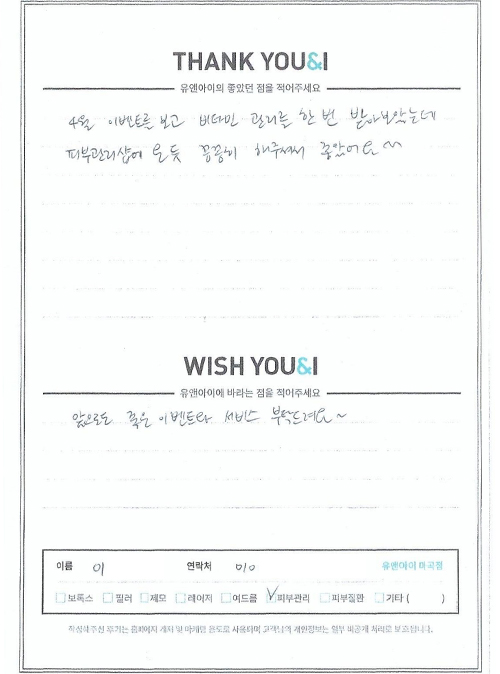 THANK YOU&I
유앤아이의 좋았던 점을 적어주세요
4월 이벤트를 보고 비타민 관리를 한 번 받아보았는데
피부관리샵에 온듯 꼼꼼히 해주셔서 좋았어요~
WISH YOU&I
유앤아이에 바라는 점을 적어주세요
앞으로도 좋은 이벤트와 서비스 부탁드려요~
이름 이 연락처 010 유앤아이 마곡점
보톡스 필러 제모 레이저 여드름 피부관리 피부질환 기타 ( )
작성해주신 후기는 홈페이지 게재 및 마케팅 용도로 사용되며 고객님의 개인정보는 일부 비공개 처리로 보호됩니다.